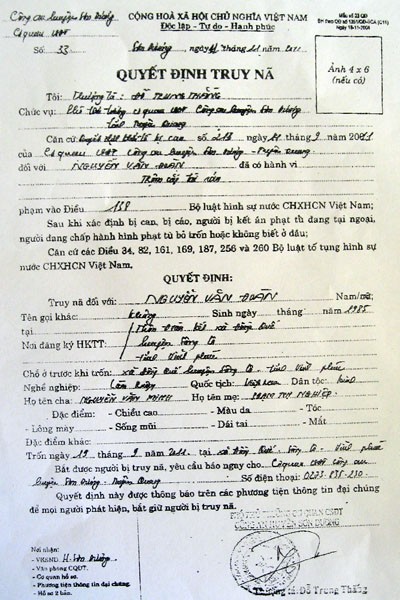 Công an huyện Sơn Dương
Cơ quan CSĐT
Số: 33
CỘNG HOÀ XÃ HỘI CHỦ NGHĨA VIỆT NAM
Độc lập - Tự do - Hạnh phúc
Sơn Dương, ngày 21 tháng 11 năm 2011
Mẫu số 23
Ngày 18-11-2004
Ảnh 4 x 6
(nếu có)
QUYẾT ĐỊNH TRUY NÃ
Tôi: Thượng tá: ĐỖ TRUNG THẮNG
Chức vụ: Phó thủ trưởng cơ quan CSĐT Công an huyện Sơn Dương
tỉnh Tuyên Quang
Căn cứ Quyết định khởi tố bị can số ngày tháng 9 năm 2011
của Cơ quan CSĐT Công an huyện Sơn Dương - Tuyên Quang
đối với NGUYỄN VĂN ĐOÀN đã có hành vi
Trộm cắp tài sản
phạm vào Điều 138 Bộ luật hình sự nước CHXHCN Việt Nam;
Sau khi xác định bị can, bị cáo, người bị kết án phạt tù đang tại ngoại,
người đang chấp hành hình phạt tù bỏ trốn hoặc không biết ở đâu;
Căn cứ các Điều 34, 82, 161, 169, 187, 256 và 260 Bộ luật tố tụng hình sự
nước CHXHCN Việt Nam.
QUYẾT ĐỊNH:
Truy nã đối với: NGUYỄN VĂN ĐOÀN Nam/nữ;
Tên gọi khác: không Sinh ngày tháng năm 1985
tại
Nơi đăng ký HKTT: xã Đồng Quế
huyện Sông Lô
tỉnh Vĩnh Phúc
Chỗ ở trước khi trốn: xã Đồng Quế huyện Sông Lô - tỉnh Vĩnh Phúc
Nghề nghiệp: Làm ruộng Quốc tịch: Việt Nam Dân tộc: kinh
Họ tên cha: NGUYỄN VĂN MINH Họ tên mẹ:
Đặc điểm: - Chiều cao - Màu da - Tóc
- Lông mày - Sống mũi - Dái tai - Mắt
Đặc điểm khác:
Trốn ngày 19 tháng 9 năm 2011 tại xã Đồng Quế - Sông Lô - Vĩnh Phúc
Bắt được người bị truy nã, yêu cầu báo ngay cho Cơ quan CSĐT Công an
huyện Sơn Dương - Tuyên Quang Số điện thoại: 0273.835.230
Quyết định này được thông báo trên các phương tiện thông tin đại chúng
để mọi người phát hiện, bắt giữ người bị truy nã.
PHÓ THỦ TRƯỞNG CƠ QUAN CSĐT
CÔNG AN HUYỆN SƠN DƯƠNG
Nơi nhận:
- VKSND H. Sơn Dương
- Văn phòng CQĐT.
- Cơ quan hồ sơ.
- Phương tiện thông tin đại chúng.
- Hồ sơ 2 bản.
Thượng tá: Đỗ Trung Thắng